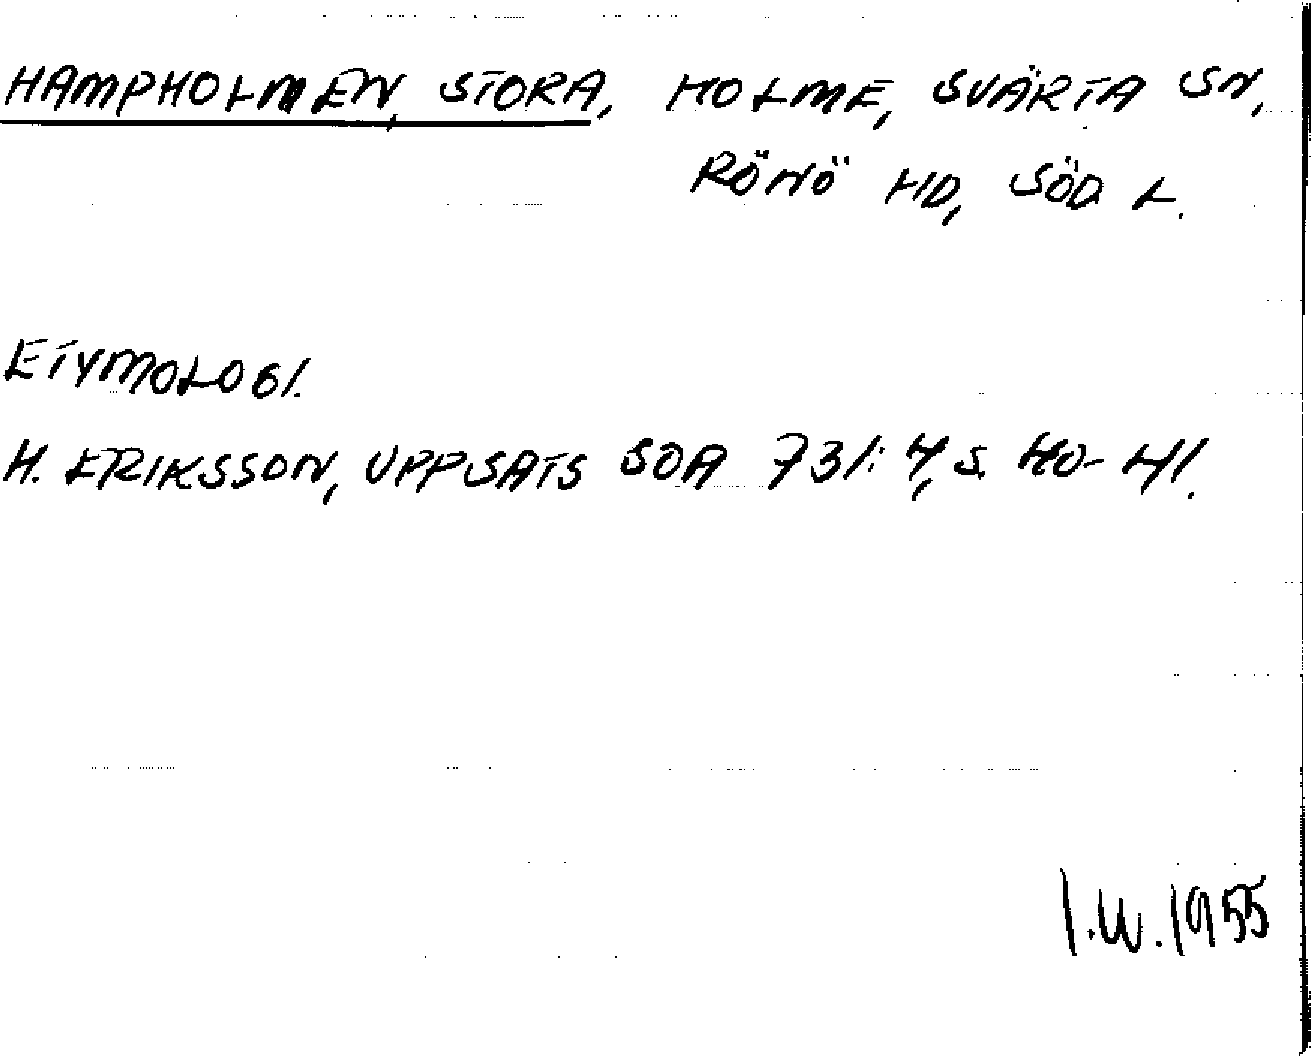 HAMPHOLMEN, STORA, HOLME, SVÄRTA SN,
RÖNÖ HD, SÖD L.
ETYMOLOGI.
H. ERIKSSON, UPPSATS SOA 731:4, S. 40-41.
I.W. 1955